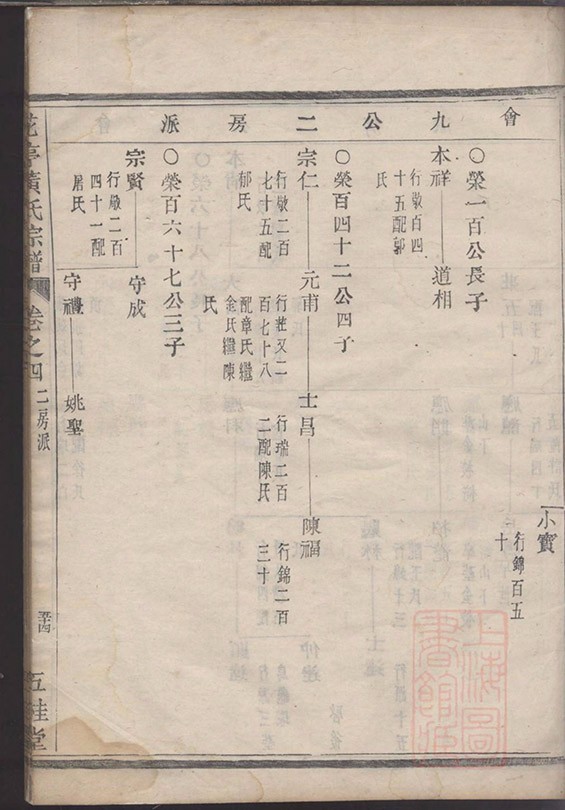 會九公二房派
小寶
行錦百五
十
○榮一百公長子
本祥 道相
行敬百四
十五配郭
氏
○榮百四十二公四子
宗仁 元甫 士昌 陳福
行敬二百
七十五配
郁氏
行莊又二
百七十八
配章氏繼
金氏繼陳
氏
行瑞二百
二配陳氏
行錦二百
三十
○榮百六十七公三子
宗賢 守成
行敬二百
四十一配
居氏
守禮 姚聖
黃氏宗譜 卷之四 二房派
五桂堂
上海圖書館藏